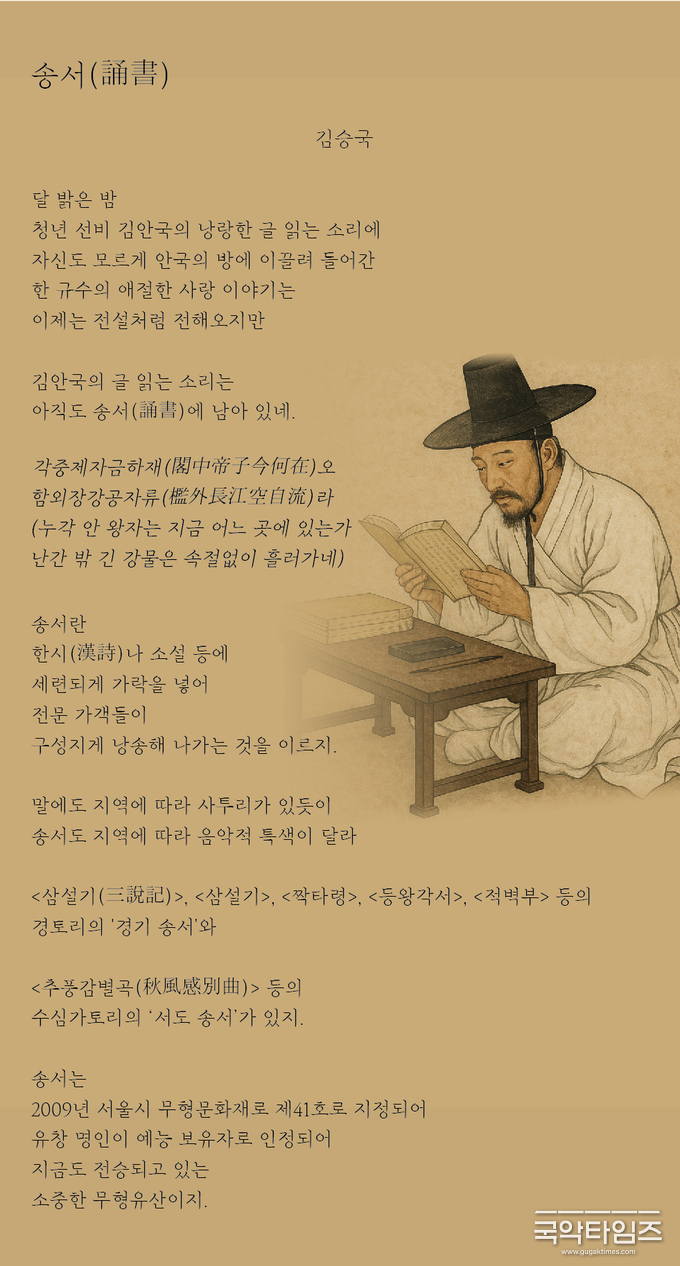 송서(誦書)
김승국
달 밝은 밤
청년 선비 김안국의 낭랑한 글 읽는 소리에
자신도 모르게 안국의 방에 이끌려 들어간
한 규수의 애절한 사랑 이야기는
이제는 전설처럼 전해오지만
김안국의 글 읽는 소리는
아직도 송서(誦書)에 남아 있네.
각중제자금하재(閣中帝子今何在)오
함외장강공자류(檻外長江空自流)라
(누각 안 왕자는 지금 어느 곳에 있는가
난간 밖 긴 강물은 속절없이 흘러가네)
송서란
한시(漢詩)나 소설 등에
세련되게 가락을 넣어
전문 가객들이
구성지게 낭송해 나가는 것을 이르지.
말에도 지역에 따라 사투리가 있듯이
송서도 지역에 따라 음악적 특색이 달라
<삼설기(三說記)>, <삼설기>, <짝타령>, <등왕각서>, <적벽부> 등의
경토리의 '경기 송서'와
<추풍감별곡(秋風感別曲)> 등의
수심가토리의 '서도 송서'가 있지.
송서는
2009년 서울시 무형문화재로 제41호로 지정되어
유창 명인이 예능 보유자로 인정되어
지금도 전승되고 있는
소중한 무형유산이지.
국악타임즈
www.gugaktimes.com